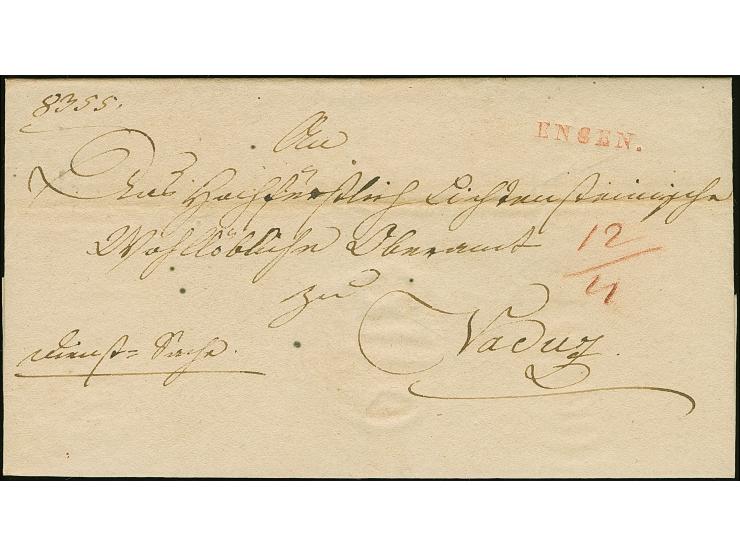 8355.
ENGEN.
An
Das Hochfürstlich Lichtensteinische
Wohllöbliche Oberamt
12/4
zu
Vaduz
Dienst=Sache.